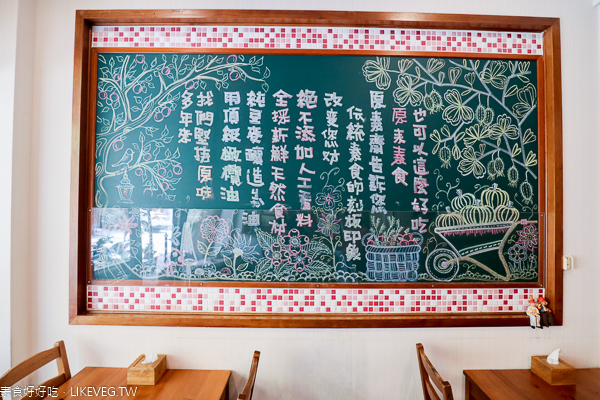 多年來
我們堅持原味
用頂級橄欖油
純豆麥釀造醬油
全採新鮮天然食材
絕不添加人工香料
改變您對
傳統素食的刻板印象
原素齋告訴您
原來素食
也可以這麼好吃
素食好好吃．LIKEVEG.TW